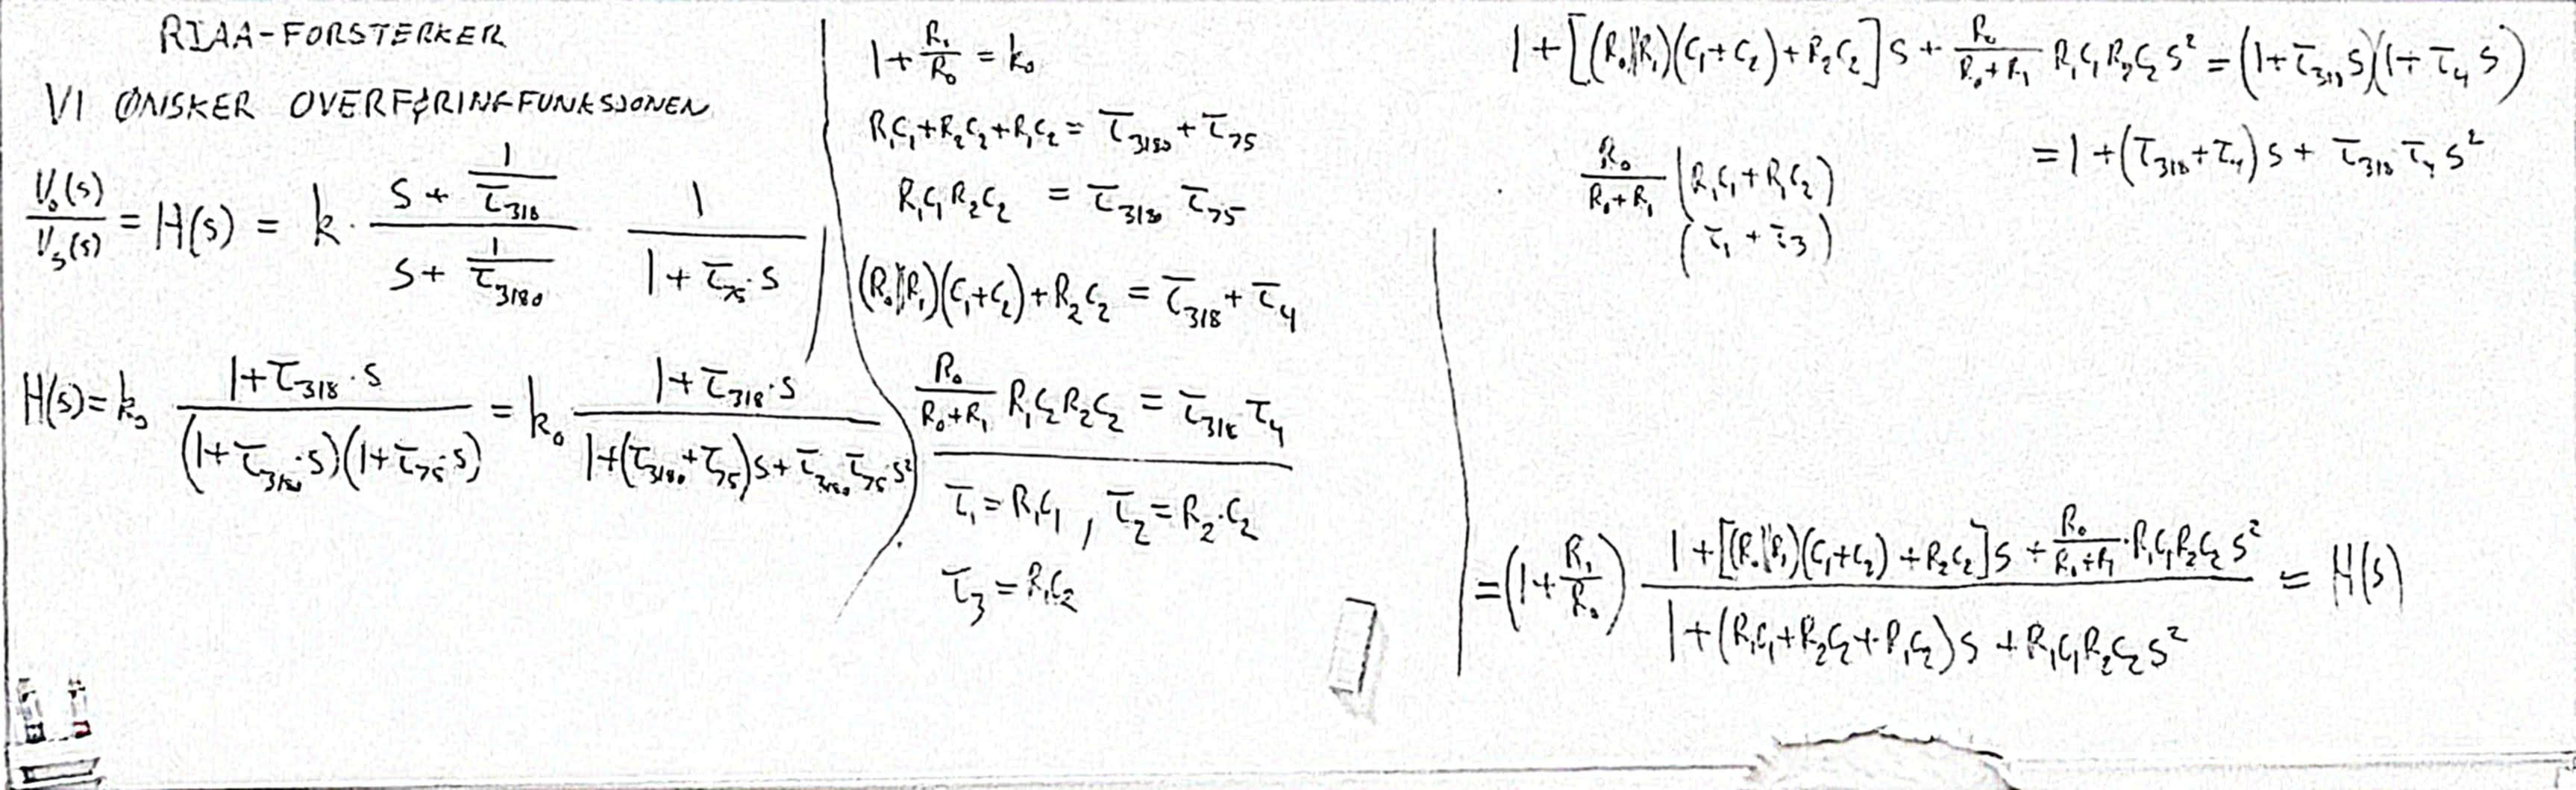 RIAA-FORSTERKER
VI ØNSKER OVERFØRINGFUNKSJONEN
V₀(s)/Vₛ(s) = H(s) = k · (s + 1/τ₃₁₈)/(s + 1/τ₃₁₈₀) 1/(1 + τ₇₅·s)
H(s) = k₀ (1+τ₃₁₈·s)/((1+τ₃₁₈₀·s)(1+τ₇₅·s)) = k₀ (1+τ₃₁₈·s)/(1+(τ₃₁₈₀+τ₇₅)s+τ₃₁₈₀τ₇₅·s²)
1 + R₁/R₀ = k₀
R₁C₁+R₂C₂+R₁C₂ = τ₃₁₈₀ + τ₇₅
R₁C₁R₂C₂ = τ₃₁₈₀ τ₇₅
(R₀||R₁)(C₁+C₂)+R₂C₂ = τ₃₁₈ + τ₄
R₀/(R₀+R₁) R₁C₂R₂C₂ = τ₃₁₈ τ₄
τ₁ = R₁C₁, τ₂ = R₂·C₂
τ₃ = R₁C₂
1 + [(R₀||R₁)(C₁+C₂)+R₂C₂]s + R₀/(R₀+R₁) R₁C₁R₂C₂s² = (1+τ₃₁₈s)(1+τ₄s)
= 1 + (τ₃₁₈+τ₄)s + τ₃₁₈τ₄s²
R₀/(R₀+R₁) (R₁C₁+R₁C₂)
(τ₁ + τ₃)
= (1+R₁/R₀) (1+[(R₀||R₁)(C₁+C₂)+R₂C₂]s + R₀/(R₀+R₁)·R₁C₁R₂C₂s²)/(1+(R₁C₁+R₂C₂+R₁C₂)s + R₁C₁R₂C₂s²) = H(s)